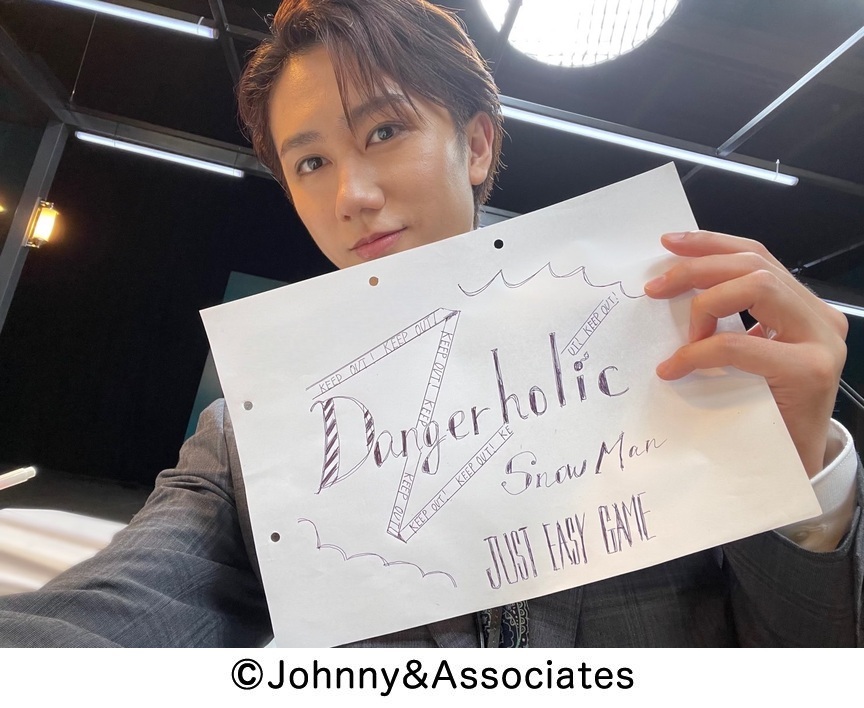 KEEP OUT! KEEP OUT!
KEEP OUT! KEEP
KEEP OUT!
KEEP OUT! KEEP OUT! KE
UT! KEEP OUT!
Dangerholic
Snow Man
JUST EASY GAME
©Johnny&Associates